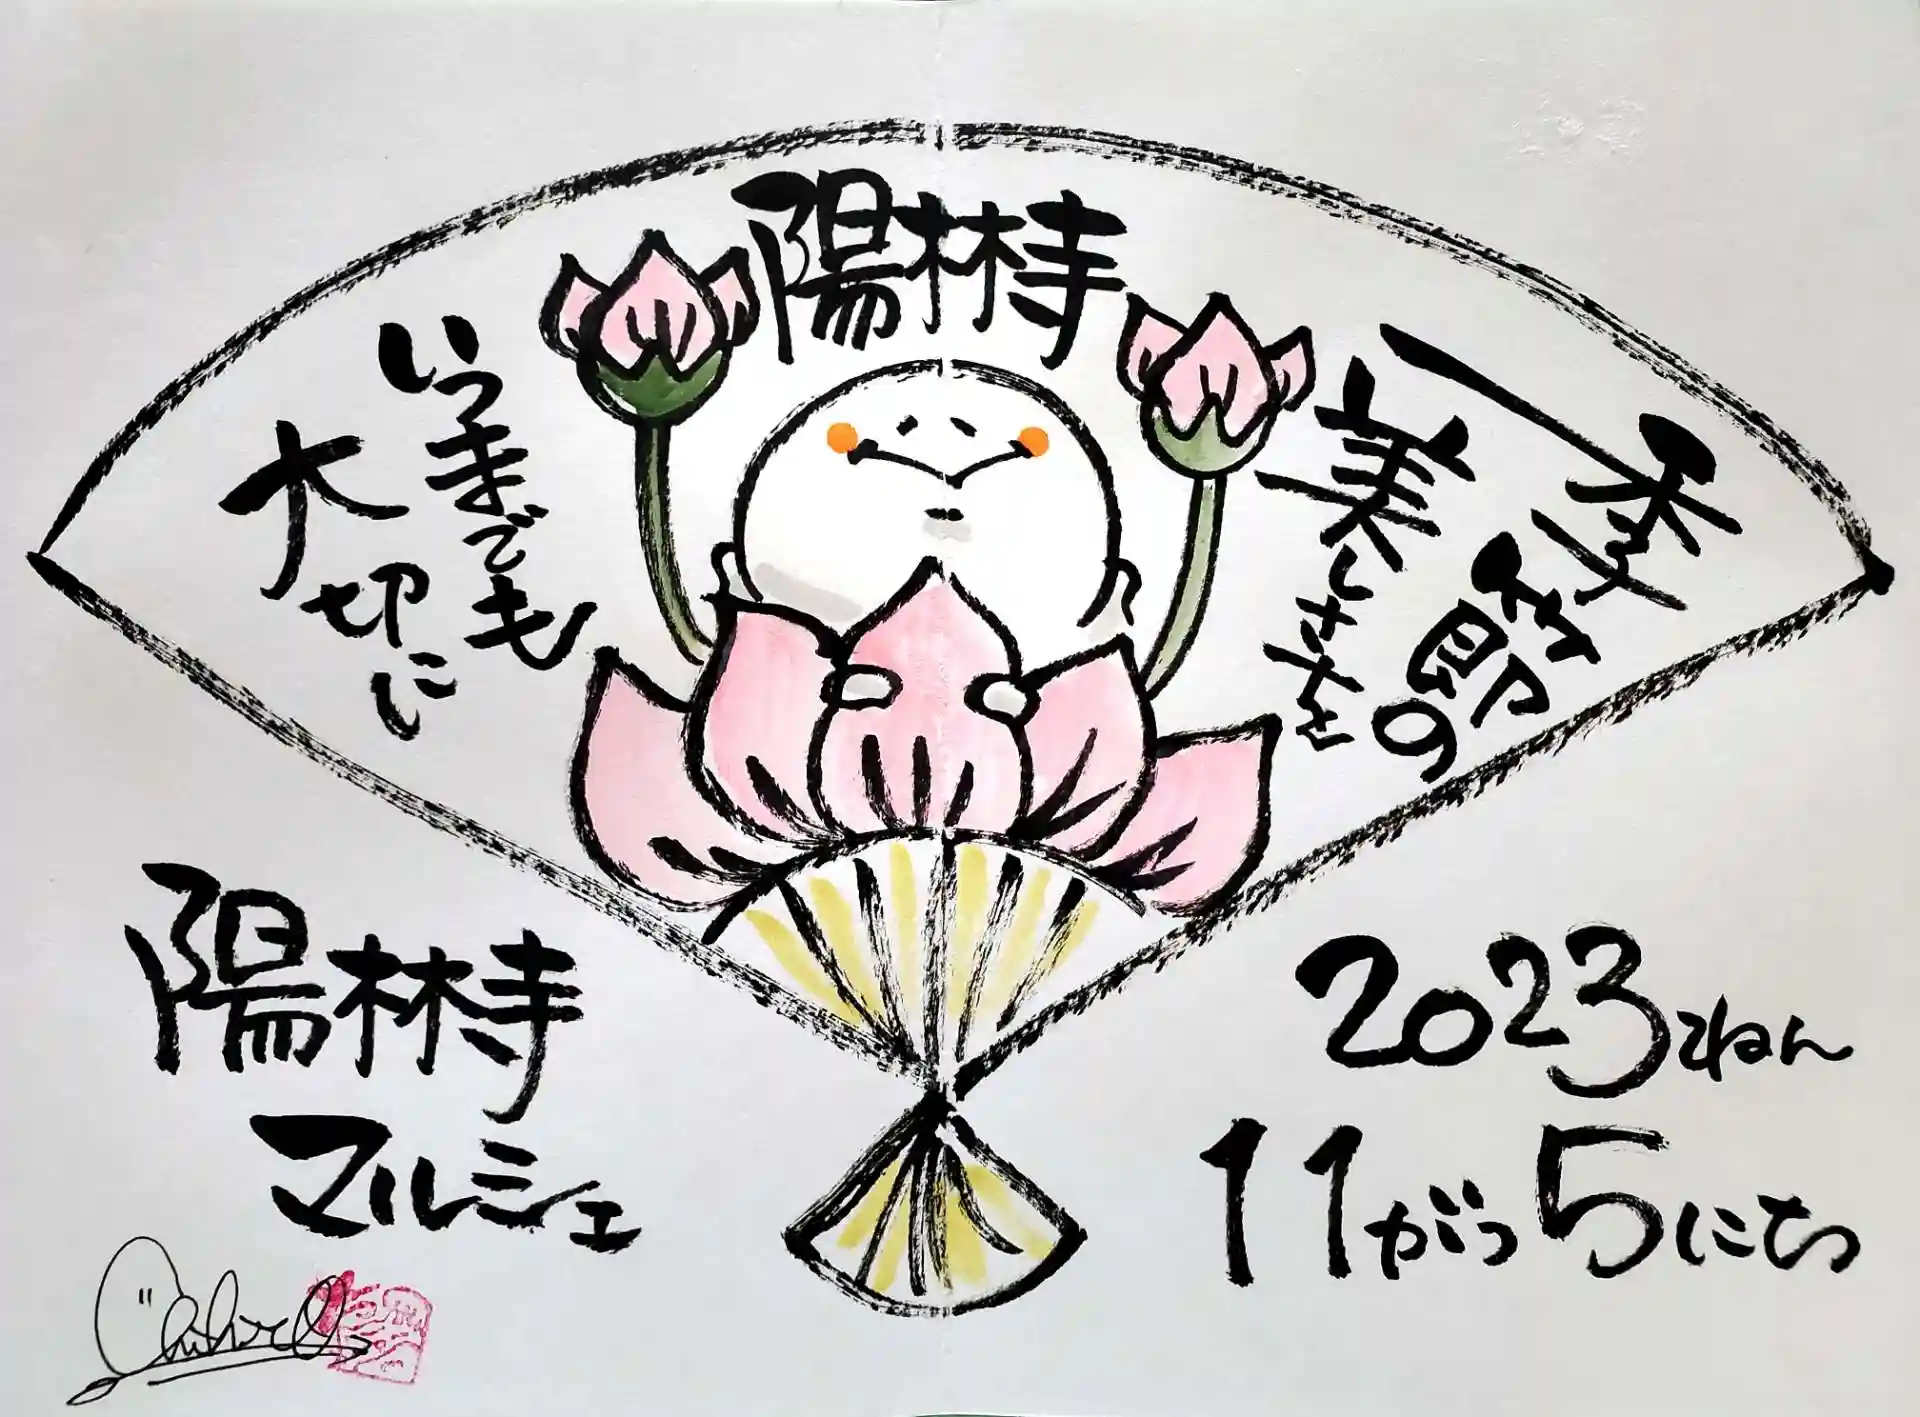 陽林寺
季節の
美しさを
いつまでも
大切に
陽林寺
マルシェ
2023ねん
11がつ5にち
Chihiro